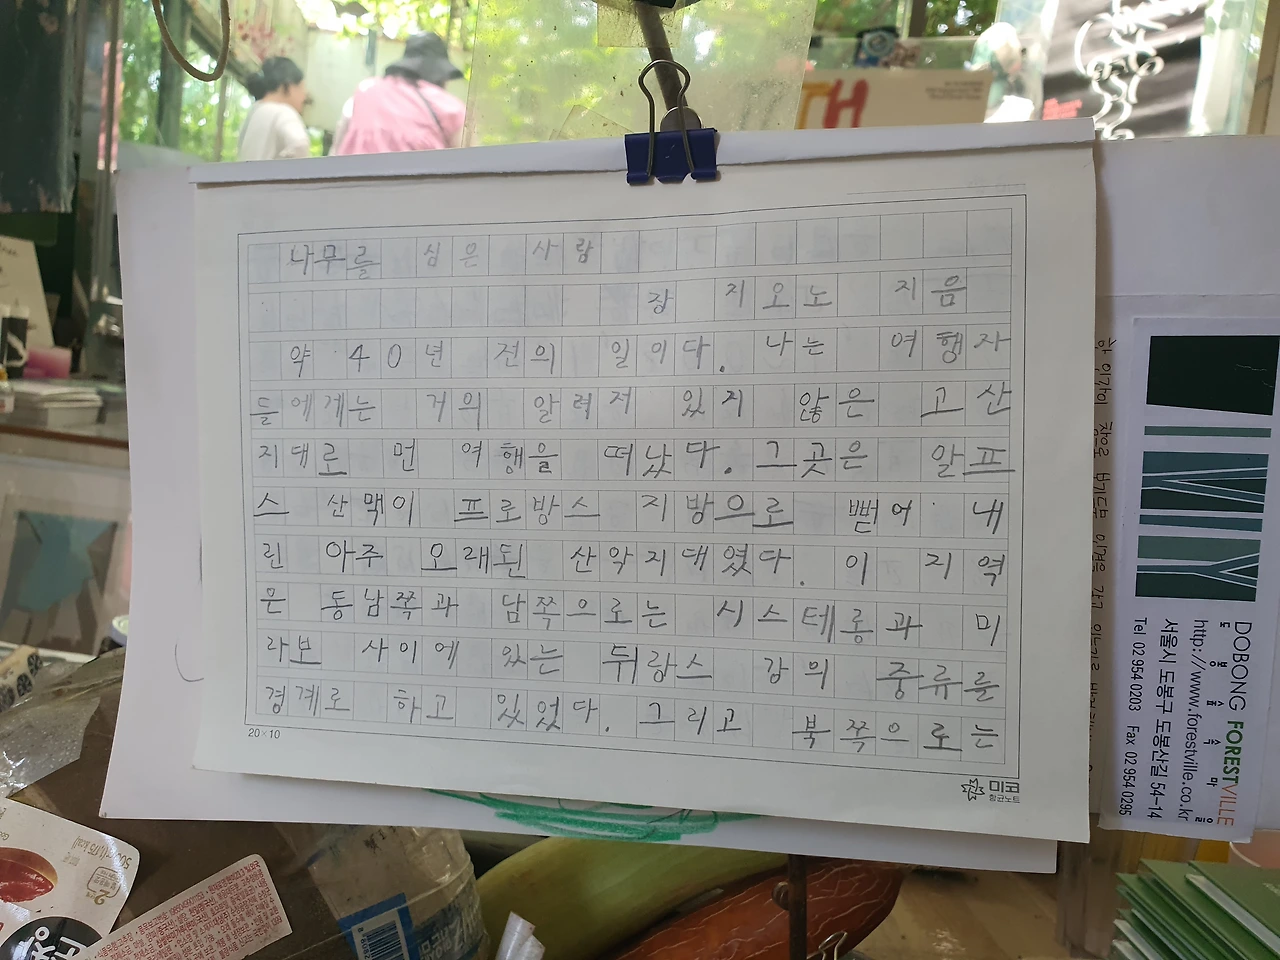 나무를 심은 사람
장 지오노 지음
약 40년 전의 일이다. 나는 여행자
들에게는 거의 알려져 있지 않은 고산
지대로 먼 여행을 떠났다. 그곳은 알프
스 산맥이 프로방스 지방으로 뻗어 내
린 아주 오래된 산악지대였다. 이 지역
은 동남쪽과 담쪽으로는 시스테롱과 미
라보 사이에 있는 뒤랑스 강의 중류를
경계로 하고 있었다. 그리고 북쪽으로는
20×10
미코
항균노트
DOBONG FORESTVILLE
도봉숲속마을
http://www.forestville.co.kr
서울시 도봉구 도봉산길 54-14
Tel 02 954 0203 Fax 02 954 0295
TH